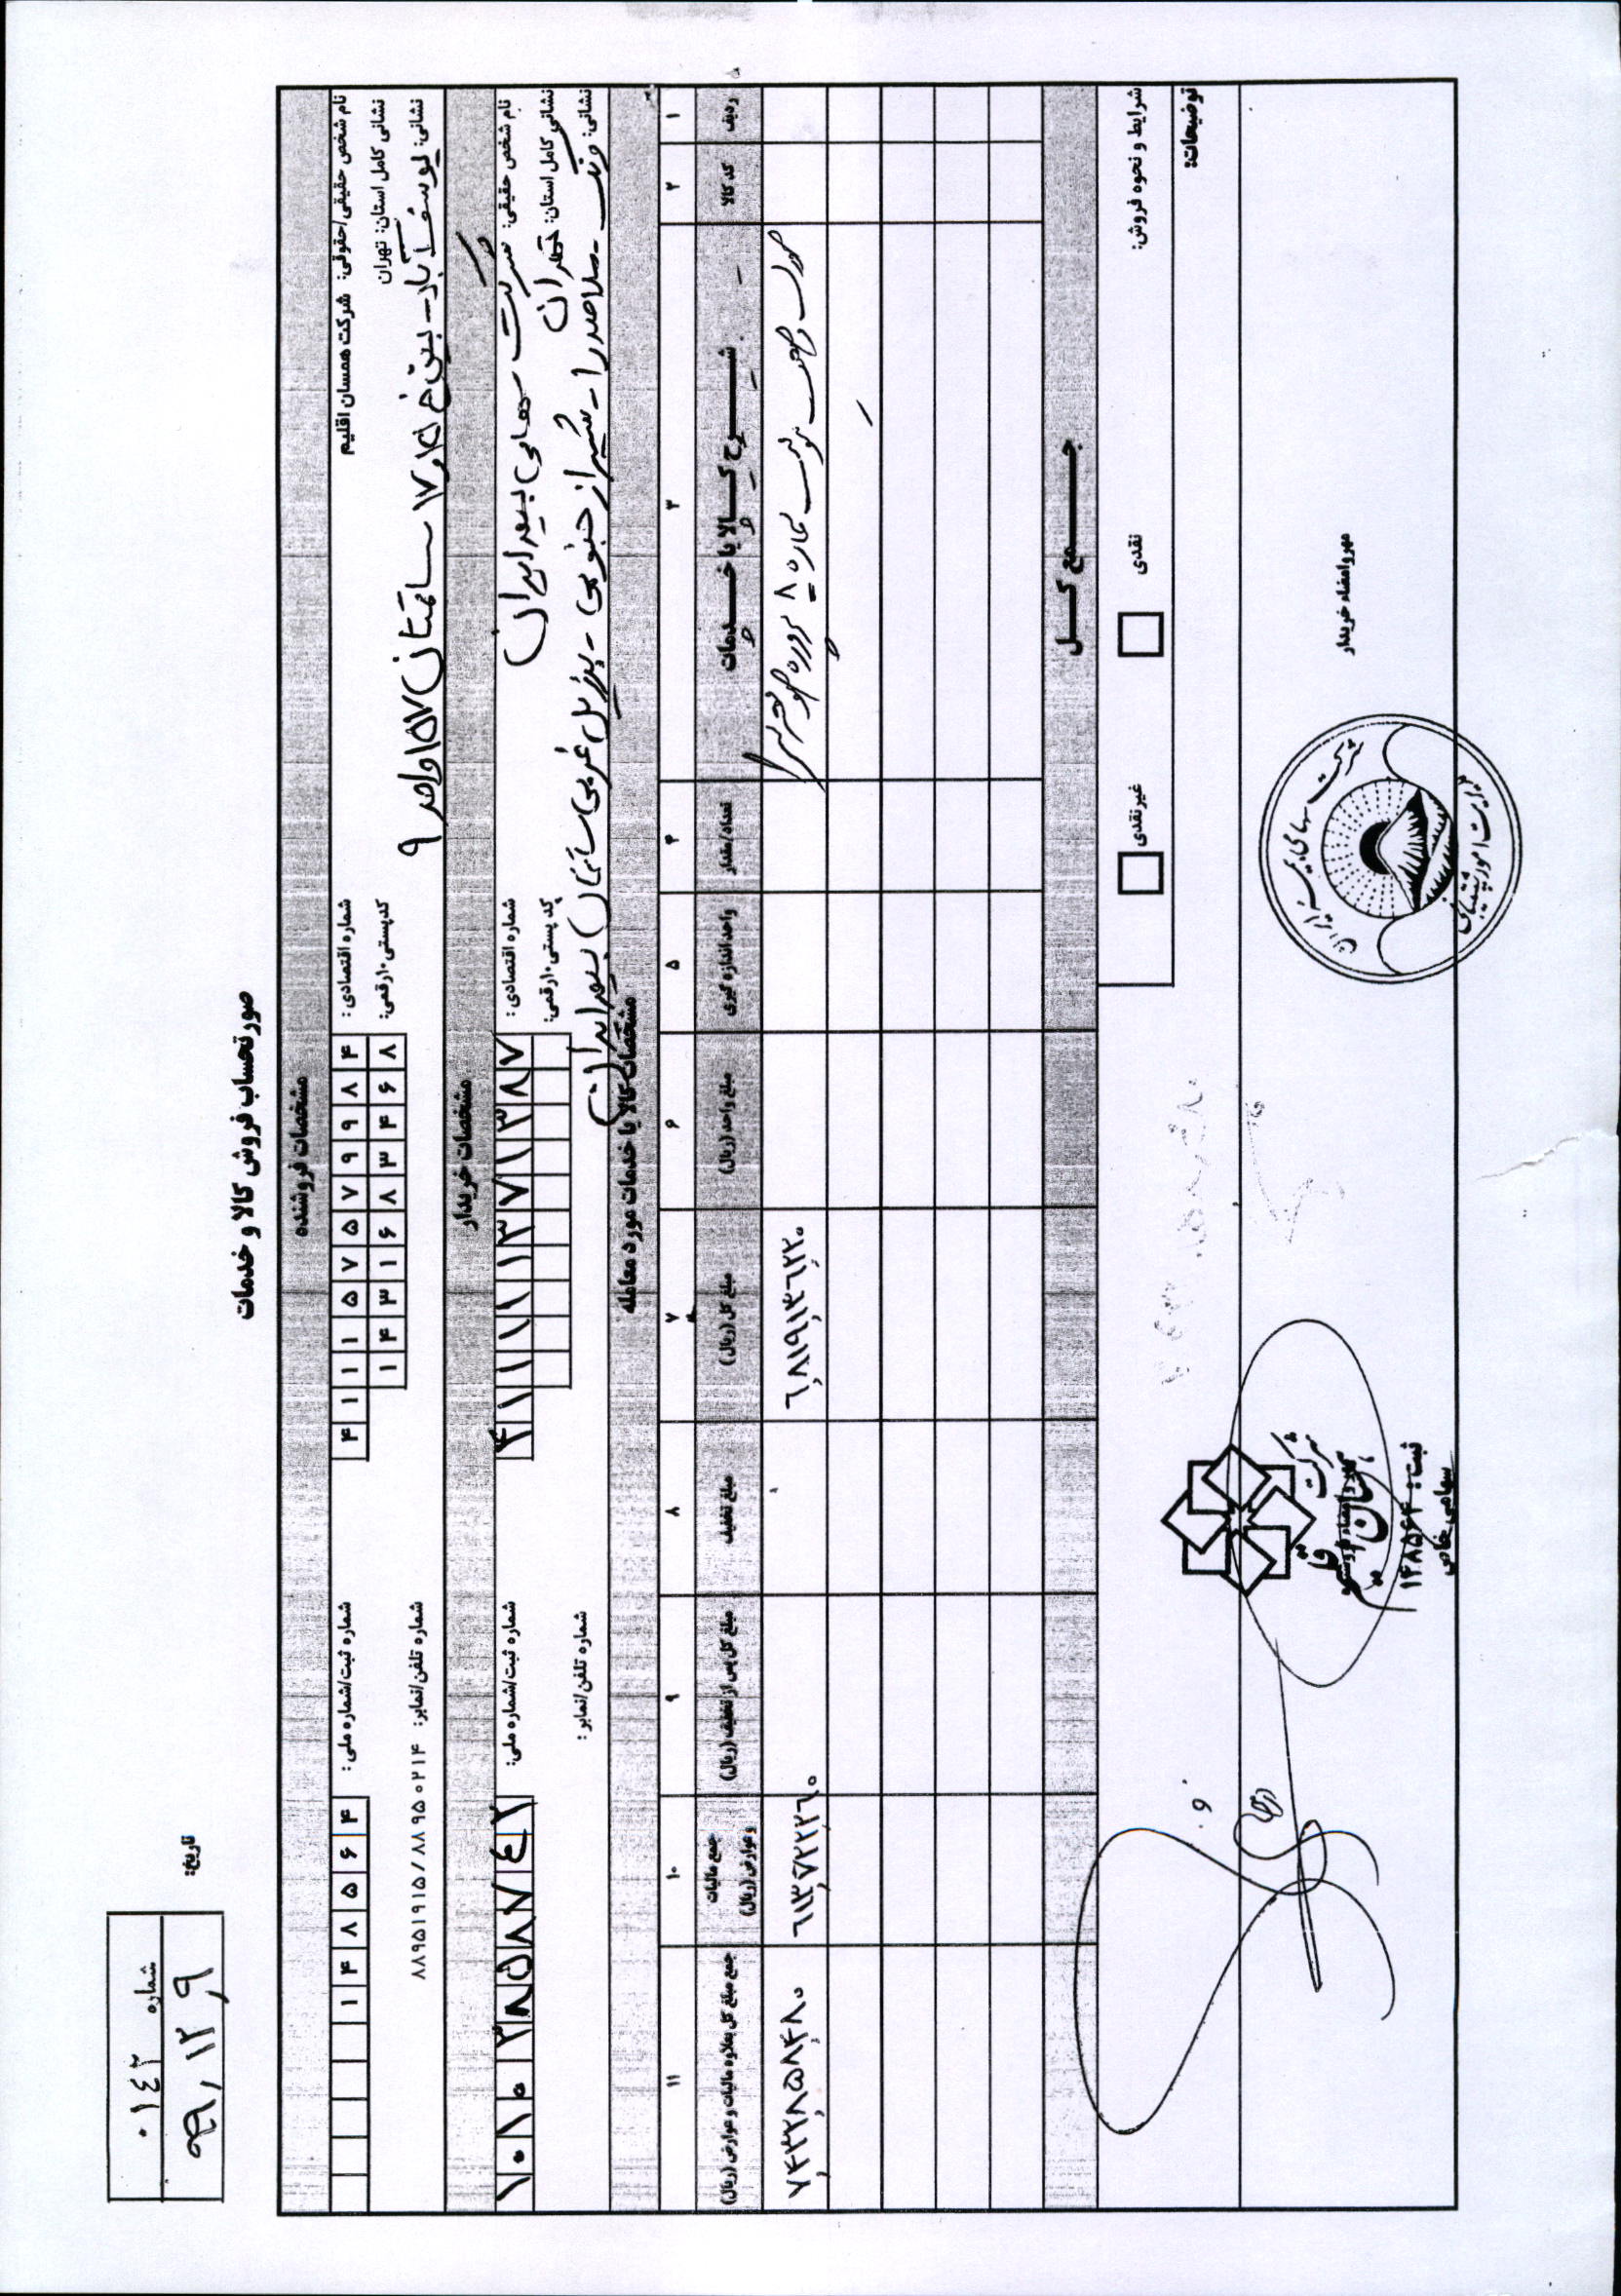 صورتحساب فروش کالا و خدمات
شماره ۰۱۴۲
تاریخ: ۹۹,۱۲,۹
مشخصات فروشنده
نام شخص حقیقی/حقوقی: شرکت همسان اقلیم شماره اقتصادی: ۴۱۱۱۵۷۵۷۹۹۸۴ شماره ثبت/شماره ملی: ۱۴۸۵۶۴
نشانی کامل استان: تهران کدپستی ۱۰رقمی: ۱۴۳۱۶۸۳۴۶۸
نشانی: یوسف آباد - بین خ ۱۵ و ۱۷ ساختمان ۱۵۷ واحد ۹ شماره تلفن/نمابر: ۸۸۹۵۱۹۱۵/۸۸۹۵۰۲۱۴
مشخصات خریدار
نام شخص حقیقی: شرکت سهامی بیمه ایران شماره اقتصادی: ۴۱۱۱۱۱۳۷۱۳۸۷ شماره ثبت/شماره ملی: ۱۰۱۰۲۸۵۸۷۴۲
نشانی کامل استان: تهران کد پستی ۱۰رقمی:
نشانی: ونک - ملاصدرا - شیراز جنوبی - برزیل غربی ساختمان بیمه ایران شماره تلفن/نمابر:
مشخصات کالا یا خدمات مورد معامله
۱ ۲ ۳ ۴ ۵ ۶ ۷ ۸ ۹ ۱۰ ۱۱
ردیف کد کالا شرح کالا یا خدمات تعداد/مقدار واحد اندازه گیری مبلغ واحد (ریال) مبلغ کل (ریال) مبلغ تخفیف مبلغ کل پس از تخفیف (ریال) جمع مالیات و عوارض (ریال) جمع مبلغ کل بعلاوه مالیات و عوارض (ریال)
صورت وضعیت موقت شماره ۸ پروژه ۶,۸۱۹,۱۳۶,۲۲۰ ۶۱۳,۷۲۲,۲۶۰ ۷,۴۳۲,۸۵۸,۴۸۰
جمع کل
شرایط و نحوه فروش: نقدی غیرنقدی
توضیحات:
مهر و امضاء خریدار
شرکت سهامی بیمه ایران
مدیریت امور پشتیبانی
مهر و امضاء فروشنده
شرکت
همسان اقلیم
ثبت: ۱۴۸۵۶۴
سهامی خاص